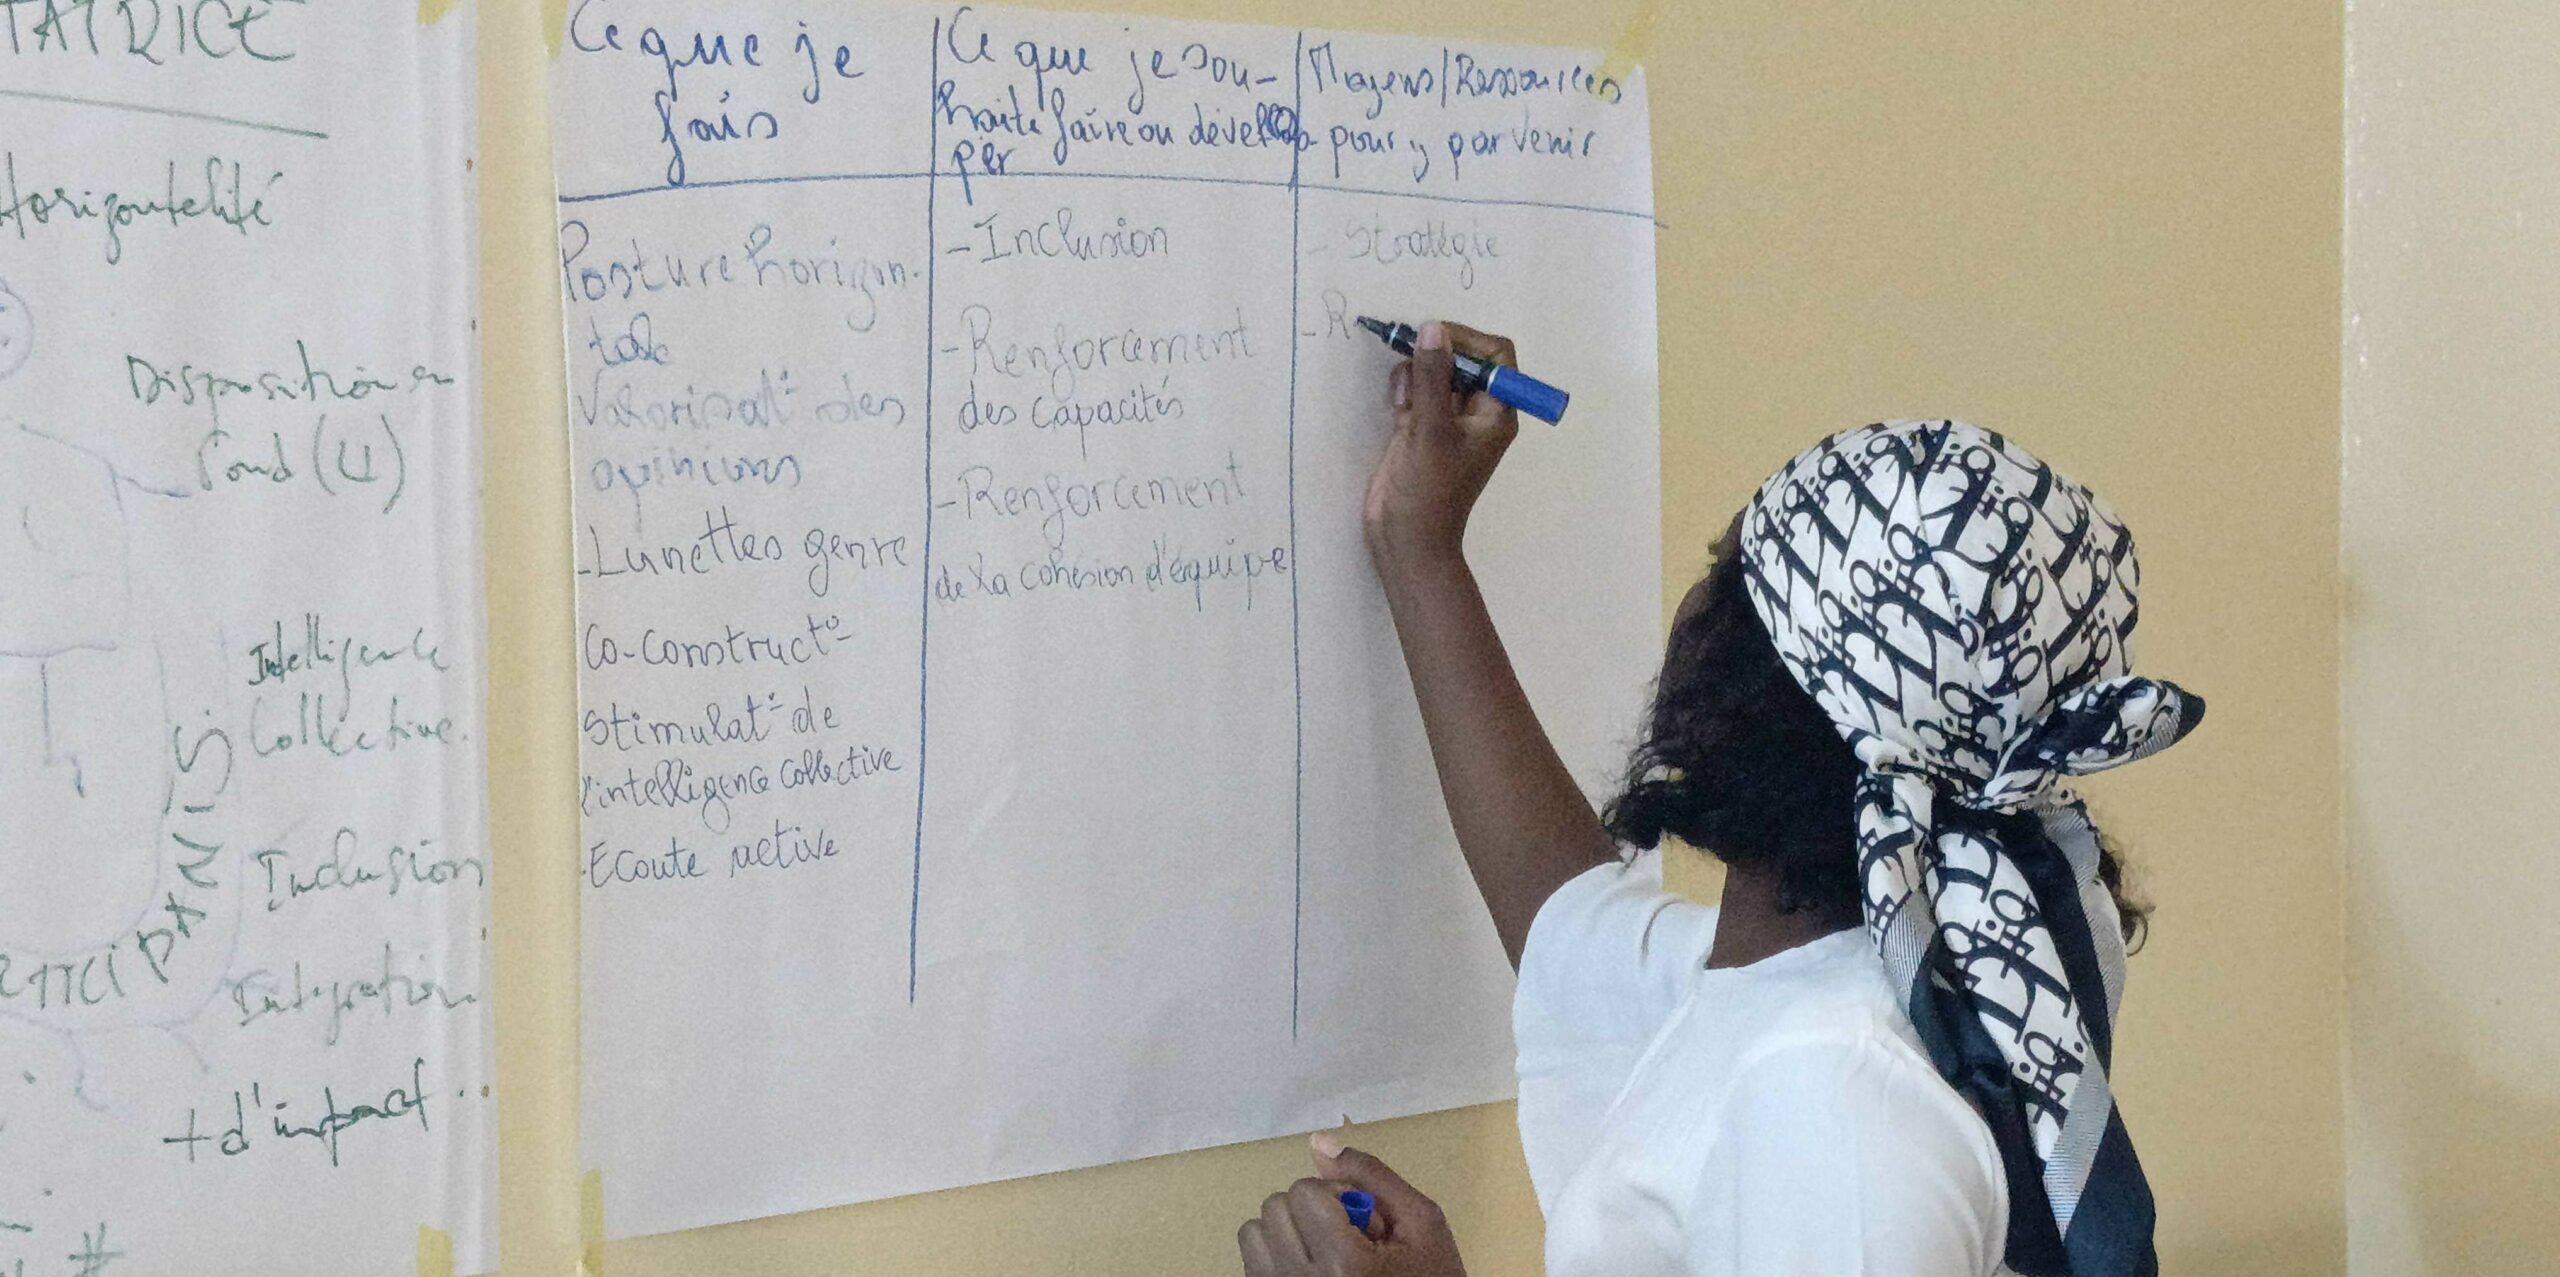 TATRICE
Horizontalité
Disposition en
fond (U)
Intelligence
Collective.
Inclusion
Intégration.
+ d'impact.
#
Ce que je
fais
Posture horizon-
tale
Valorisat° des
opinions
- Lunettes genre
Co-construct°
Stimulat° de
l'intelligence collective
- Ecoute active
Ce que je sou-
haite faire ou dévelo
per
- Inclusion
- Renforcement
des capacités
- Renforcement
de la cohésion d'équipe
Moyens/Ressources
pour y parvenir
- Stratégie
- R